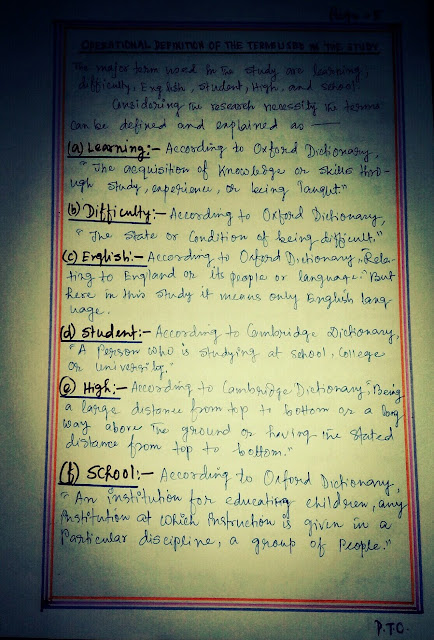 Page - 8
OPERATIONAL DEFINITION OF THE TERM USED IN THE STUDY
The major term used in the study are learning,
difficulty, English, student, High, and school"
Considering the research necessity the terms
can be defined and explained as —
(a) Learning:- According to Oxford Dictionary,
"The acquisition of knowledge or skills thro-
ugh study, experience, or being taught"
(b) Difficulty:- According to Oxford Dictionary,
"The state or condition of being difficult."
(c) English:- According to Oxford Dictionary, "Rela-
ting to England or its people or language." But
here in this study it means only English lang-
uage.
(d) Student:- According to Cambridge Dictionary,
"A person who is studying at school, college
or university."
(e) High:- According to Cambridge Dictionary "Being
a large distance from top to bottom or a long
way above the ground or having the stated
distance from top to bottom."
(f) School:- According to Oxford Dictionary,
"An institution for educating children, any
institution at which instruction is given in a
particular discipline, a group of people."
P.T.O.